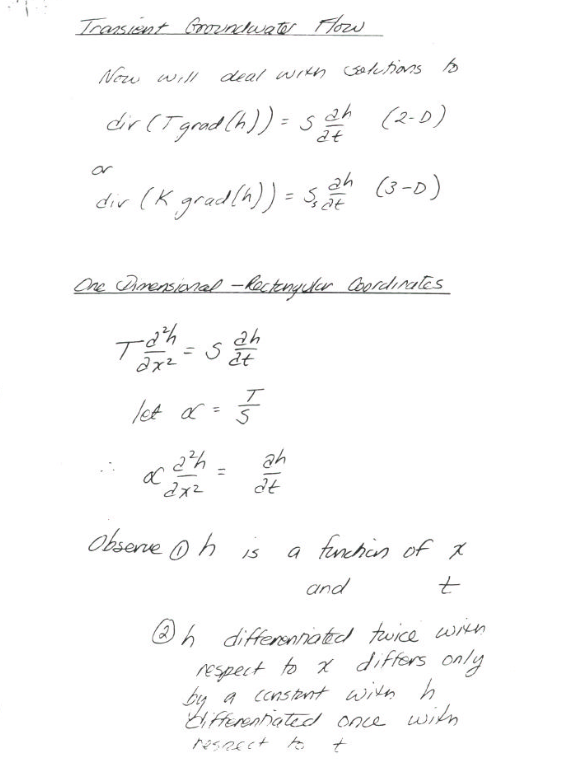 Transient Groundwater Flow
Now will deal with solutions to
div (T grad(h)) = S ∂h/∂t (2-D)
or
div (K grad(h)) = Sₛ ∂h/∂t (3-D)
One Dimensional - Rectangular Coordinates
T ∂²h/∂x² = S ∂h/∂t
let α = T/S
∴ α ∂²h/∂x² = ∂h/∂t
Observe ① h is a function of x
and t
② h differentiated twice with
respect to x differs only
by a constant with h
differentiated once with
respect to t